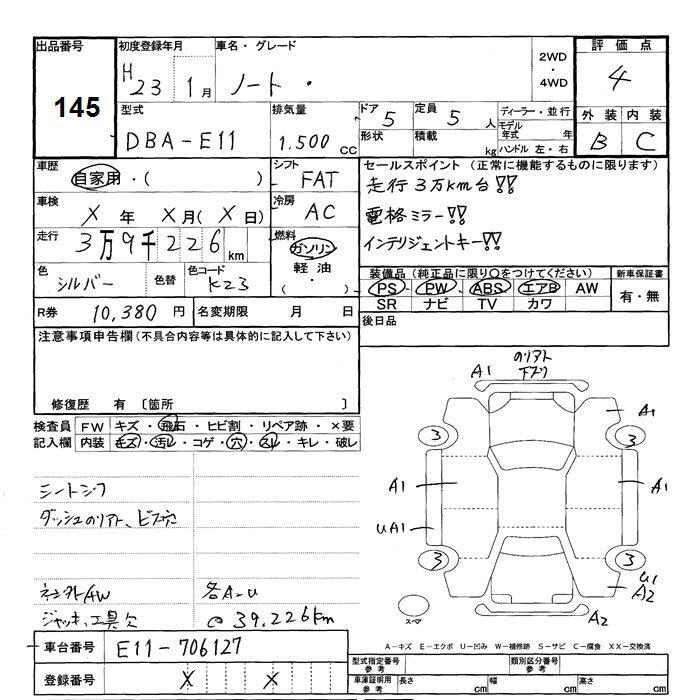 出品番号
145
初度登録年月
H 23 1月
車名・グレード
ノート・
2WD・4WD
評価点
4
型式
DBA-E11
排気量
1.500 CC
ドア 5
形状
定員 5 人
積載 kg
ディーラー・並行
モデル年式 年
ハンドル 左・右
外装 内装
B C
車歴
自家用・( )
シフト
FAT
セールスポイント (正常に機能するものに限ります)
走行3万km台!!
電格ミラー!!
インテリジェントキー!!
車検
X 年 X 月( X 日)
冷房
AC
走行
3万9千226 km
燃料
ガソリン
軽油・
( )
色
シルバー
色替
色コード
K23
装備品 (純正品に限り○をつけてください)
PS PW ABS エアB AW
SR ナビ TV カワ
新車保証書
有・無
R券 10,380 円
名変期限 月 日
後日品
注意事項申告欄(不具合内容等は具体的に記入して下さい)
修復歴 有 〔箇所 〕
検査員記入欄
FW キズ・飛石・ヒビ割・リペア跡・×要
内装 キズ・汚レ・コゲ・穴・スレ・キレ・破レ
シートシワ
ダッシュのリアト、ビス穴
社外AW
各A-U
ジャッキ、工具欠
@ 39,226km
車台番号 E11-706127
登録番号 X X
A1
のリアト
下ズリ
A1
3
3
A1
A1
UA1
3
3
U1
A2
A2
スペア
A-キズ E-エクボ U-凹み W-補修跡 S-サビ C-腐食 XX-交換済
型式指定番号 参考
類別区分番号 参考
車庫証明用 参考
長さ cm
幅 cm
高さ cm